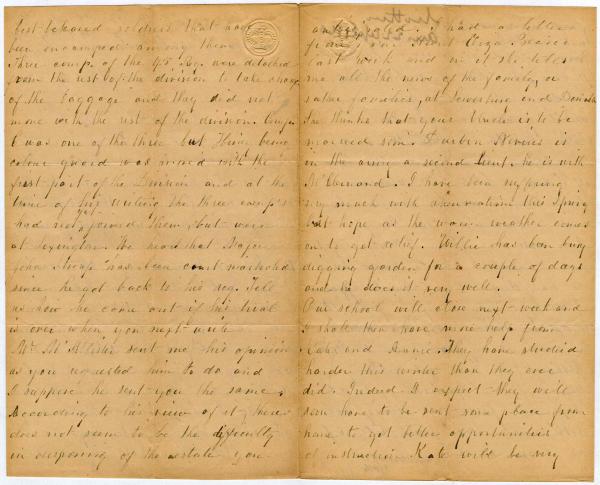 best behaved soldiers that have
been encamped among them
Three comp. of the 95 Reg. were detached
from the rest of the division to take charge
of the baggage and they did not
move with the rest of the division. Comp.
E was one of the three but being
colour guard was moved with the
first part of the Division and at the
time of his writing the three comp's
had not yet joined them, but were
at Lexington. He hears that Major
John has been court martialed
since he got back to his reg. Tell
us how he come out if his trial
is over when you next write
Mr. McAlister sent me his opinion
as you requested him to do and
I suppose he sent you the same.
According to his view of it there
does not seem to be the difficulty
in disposing of the estate you
Mother
had a letter
from
last week and in it she tells
me all the news of the family, or
rather families, at
She thinks that your Uncle is to be
married soon. Durbin is
in the army a second Lieut. he is with
I have been suffering
very much with this Spring
but hope as the warm weather comes
on to get relief. Willie has been busy
digging garden for a couple of days
and he does it very well.
Our school will close next week and
I shall then have more help from
Kate and They have studied
harder this winter than they ever
did. Indeed I expect they will
soon have to be sent some place from
home to get better opportunities
of instruction Kate will be very